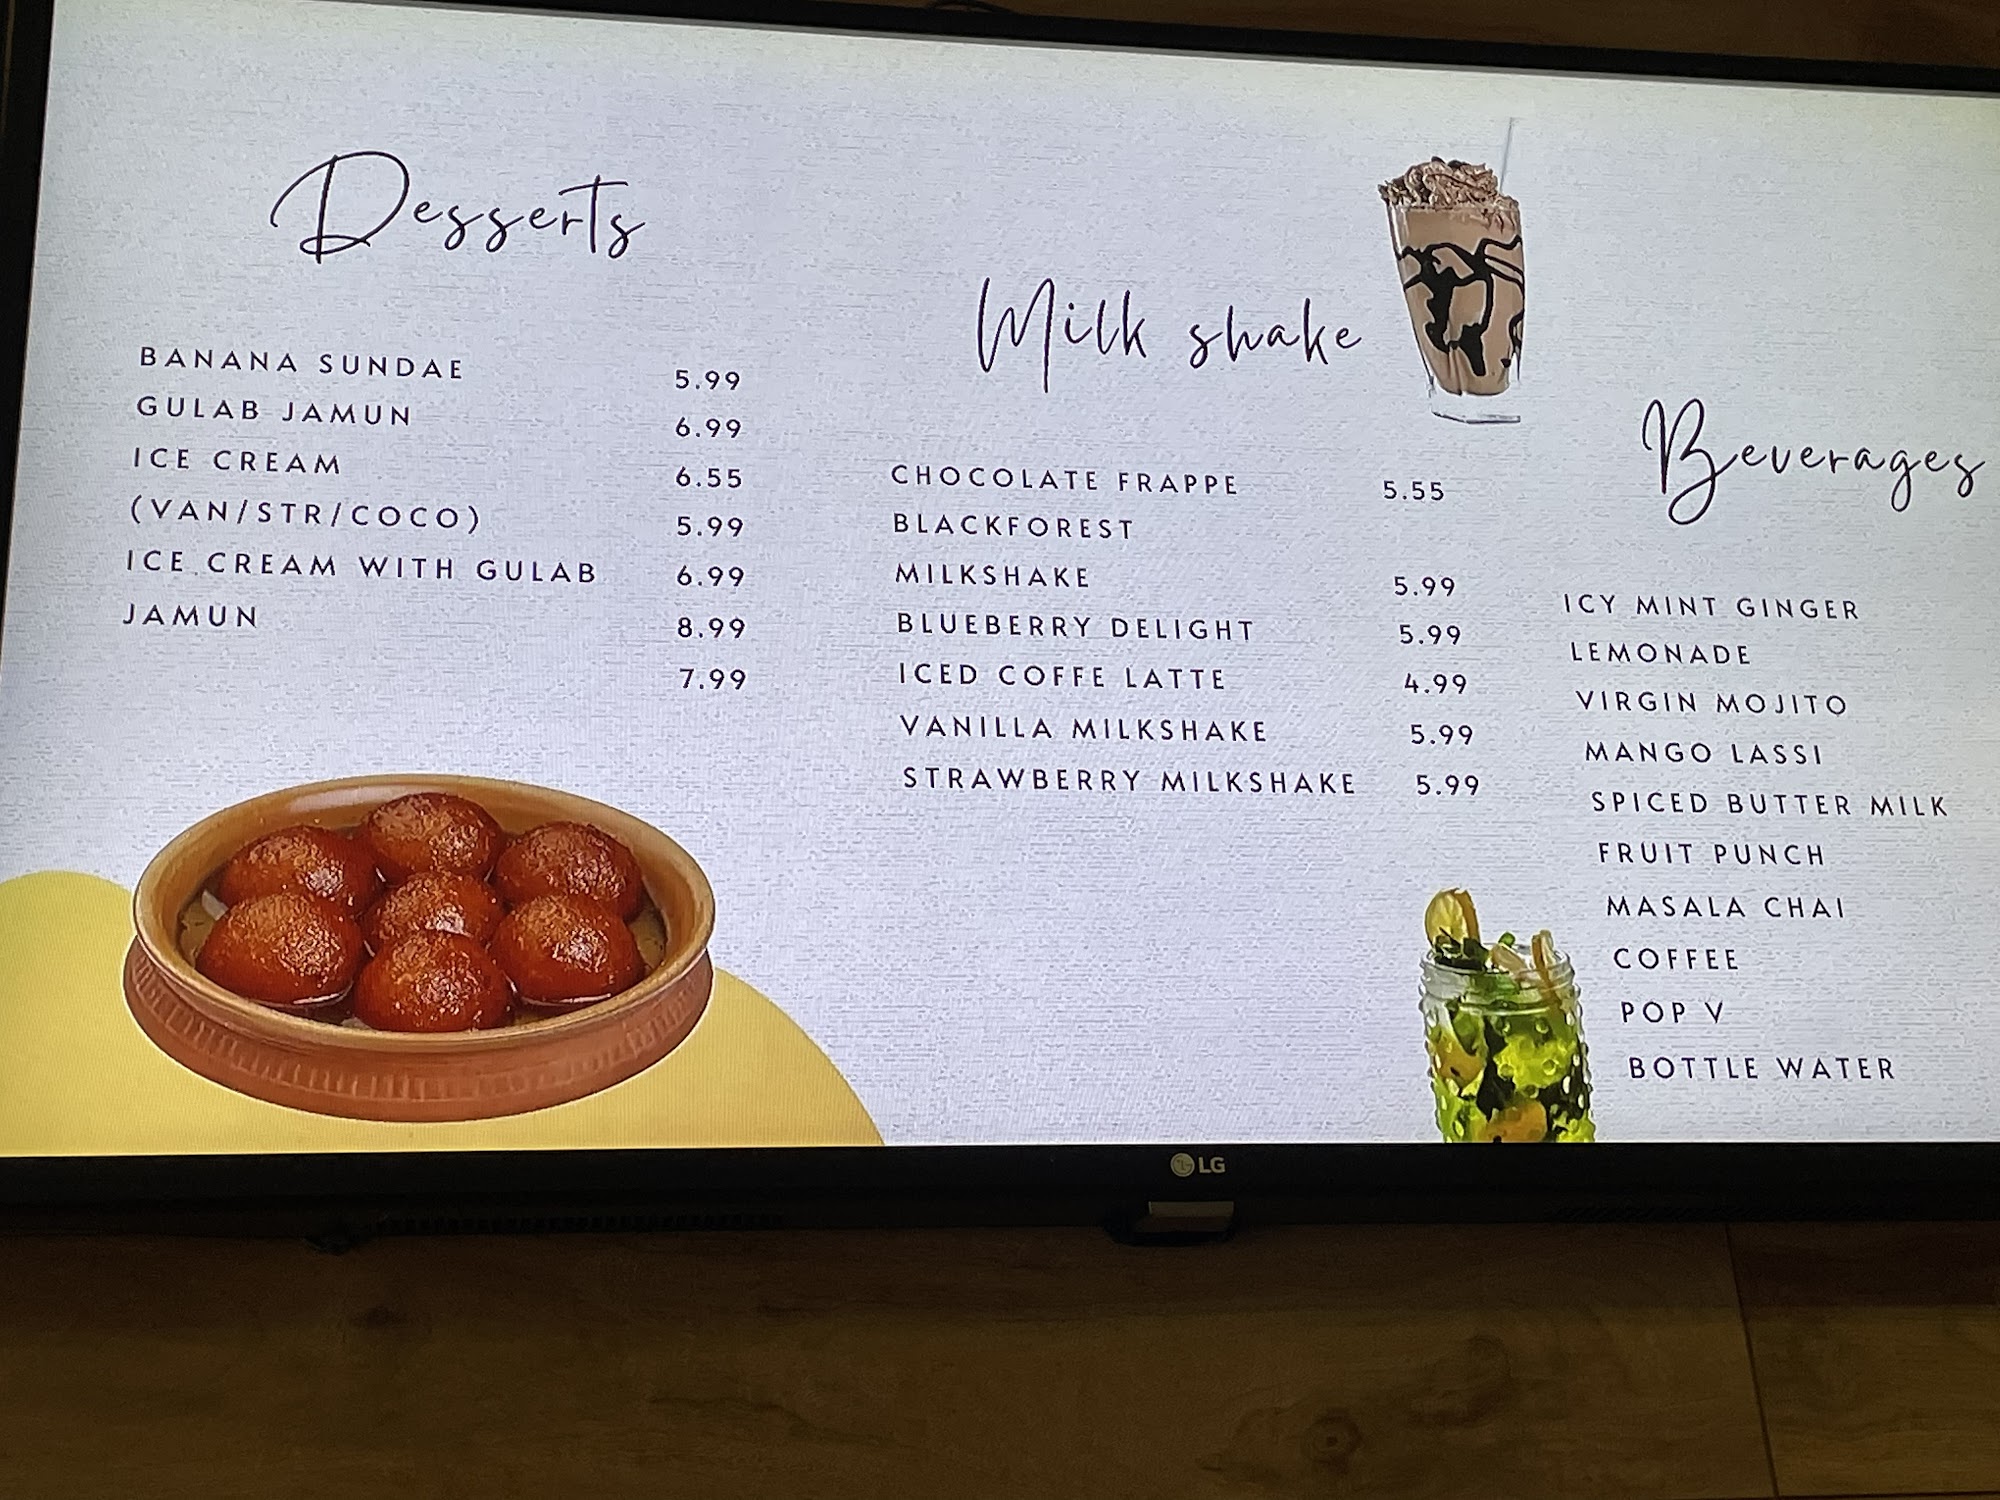 Desserts
BANANA SUNDAE 5.99
GULAB JAMUN 6.99
ICE CREAM 6.55
(VAN/STR/COCO) 5.99
ICE CREAM WITH GULAB 6.99
JAMUN 8.99
7.99
Milk shake
CHOCOLATE FRAPPE 5.55
BLACKFOREST
MILKSHAKE 5.99
BLUEBERRY DELIGHT 5.99
ICED COFFE LATTE 4.99
VANILLA MILKSHAKE 5.99
STRAWBERRY MILKSHAKE 5.99
Beverages
ICY MINT GINGER
LEMONADE
VIRGIN MOJITO
MANGO LASSI
SPICED BUTTER MILK
FRUIT PUNCH
MASALA CHAI
COFFEE
POP V
BOTTLE WATER
LG